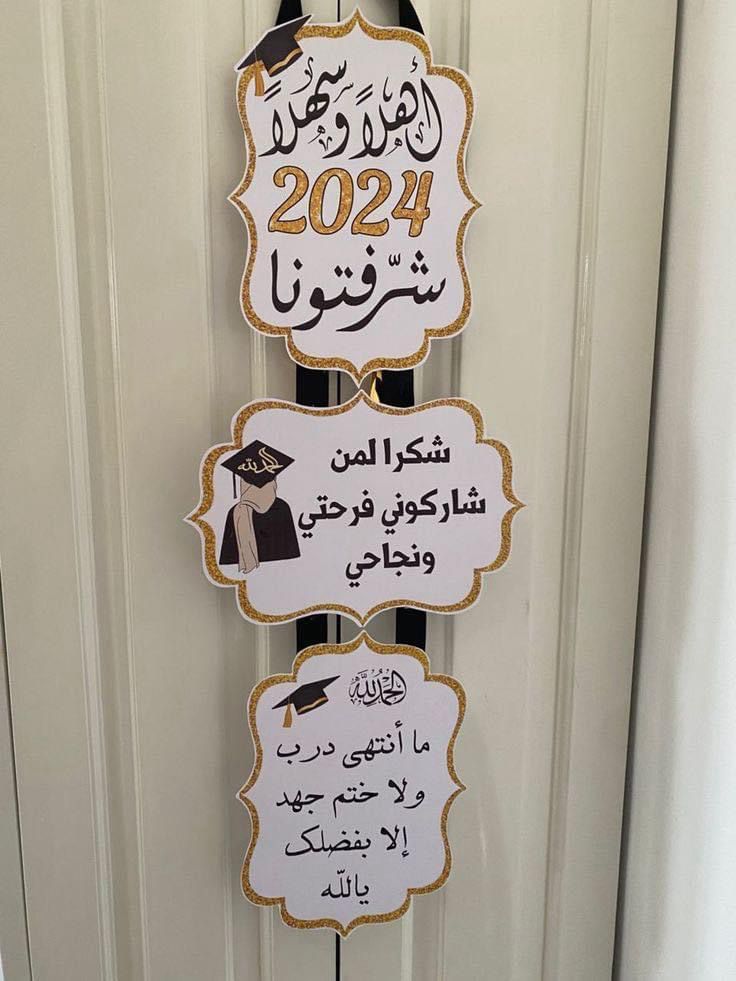 أهلاً وسهلاً
2024
شرّفتونا
الحمدلله
شكرا لمن
شاركوني فرحتي
ونجاحي
الحمدلله
ما أنتهى درب
ولا ختم جهد
إلا بفضلك
يالله